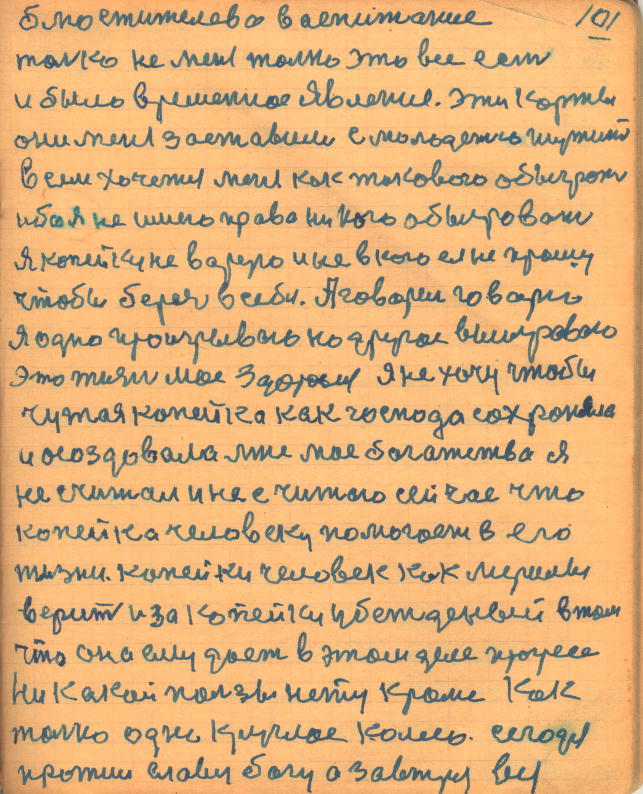 101
блюстителево воспитание
толко не мені толко это все есть
и было временное явление. Эти карты
они мені заставили с мольдежю шутить
всем хочетця мені как токового обыгрот
ибо я не имею права никого обыгровот
Я копейку не варую и не в кого ее не прошу
чтобы беречь в себи. Я говорил говарю
Я одно проигрываю но другое выигроваю
Это тизн мое здоровя я не хочу чтобы
чужая копейка как господа сохроняла
и осоздовала мне мое богатства я
не считал и не считаю сейчас что
копейка человеку помогоет в его
жизни. копейки человек как мериалы
верит и за копейку убежденый в том
что она ему дает в этом деле прогресс
Никакой ползы нету кроме как
толко одно круглое колесо. сегодня
прожил славу богу а завтря вся